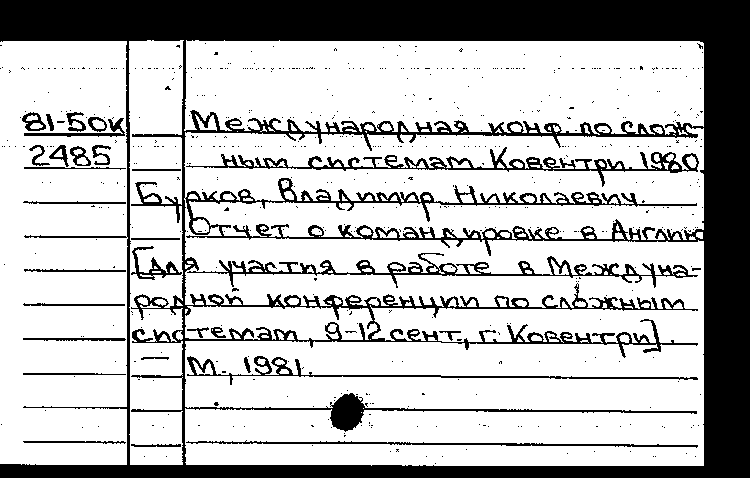 81-50к Международная конф. по слож-
2485 ным системам. Ковентри. 1980.
Бурков, Владимир Николаевич.
Отчет о командировке в Англию
[для участия в работе в Междуна-
родной конференции по сложным
системам, 9-12 сент., г. Ковентри].
— М., 1981.